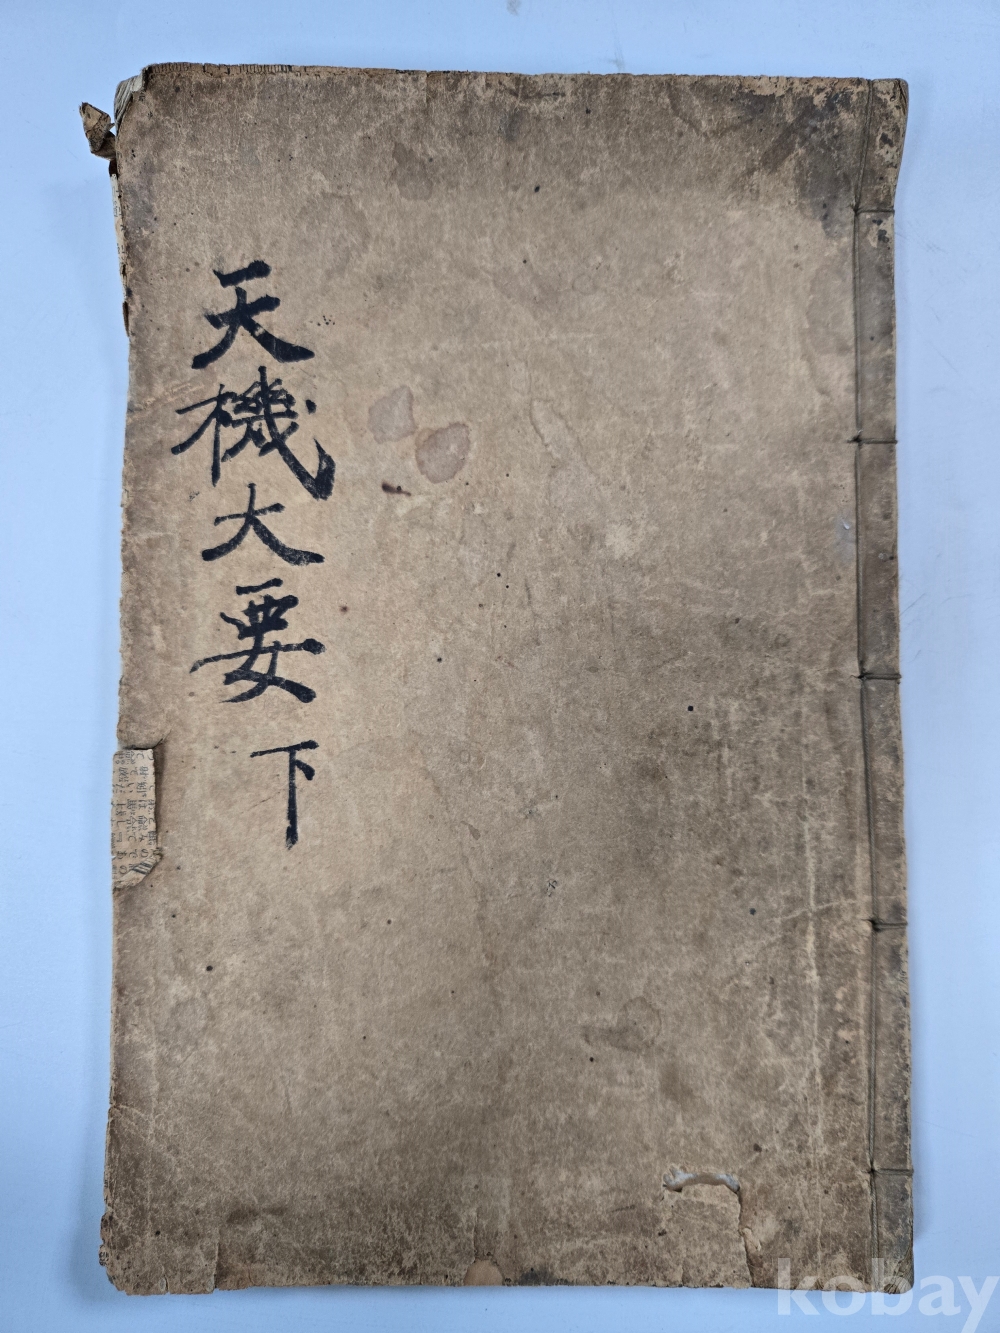 天機大要 下
kobay